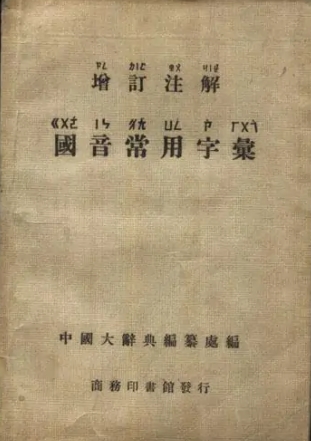 ㄗㄥ ㄉㄧㄥ ㄓㄨ ㄐㄧㄝ
增訂注解
ㄍㄨㄛ ㄧㄣ ㄔㄤ ㄩㄥ ㄗ ㄏㄨㄟ
國音常用字彙
中國大辭典編纂處編
商務印書館發行